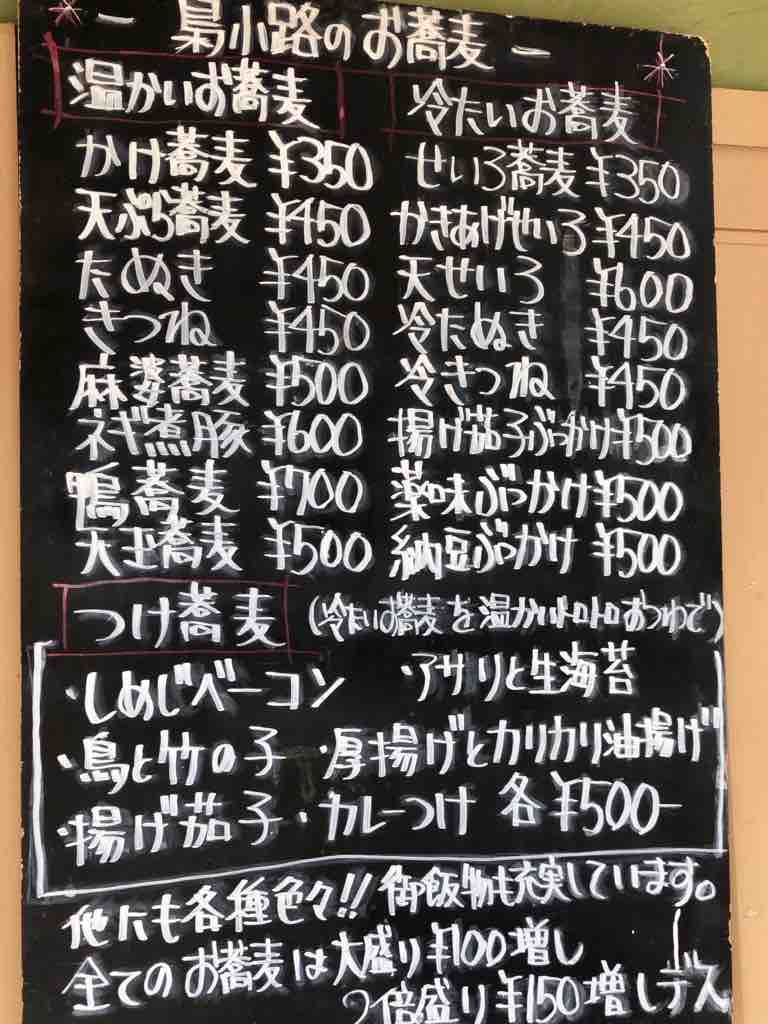 - 梟小路のお蕎麦 -
温かいお蕎麦
かけ蕎麦 ¥350
天ぷら蕎麦 ¥450
たぬき ¥450
きつね ¥450
麻婆蕎麦 ¥500
ネギ煮豚 ¥600
鴨蕎麦 ¥700
天玉蕎麦 ¥500
冷たいお蕎麦
せいろ蕎麦 ¥350
かきあげせいろ ¥450
天せいろ ¥600
冷たぬき ¥450
冷きつね ¥450
揚げ茄子ぶっかけ ¥500
薬味ぶっかけ ¥500
納豆ぶっかけ ¥500
つけ蕎麦 (冷たいお蕎麦を温かいトロトロおつゆで)
・しめじベーコン ・アサリと生海苔
・鳥と竹の子 ・厚揚げとカリカリ油揚げ
・揚げ茄子 ・カレーつけ 各¥500-
他にも各種色々!! 御飯物も充実しています。
全てのお蕎麦は大盛り¥100増し
2倍盛り¥150増しデス